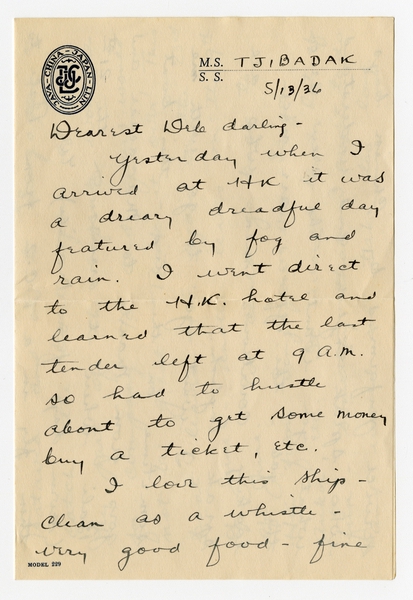 JAVA-CHINA-JAPAN-LIJN
JCJL
M.S. TJIBADAK
S. S.
5/13/36
Dearest Deb darling-
Yesterday when I
arrived at HK it was
a dreary dreadful day
featured by fog and
rain. I went direct
to the H.K. hotel and
learned that the last
tender left at 9 A.M.
so had to hustle
about to get some money
buy a ticket, etc.
I love this ship-
clean as a whistle-
very good food - fine
MODEL 229